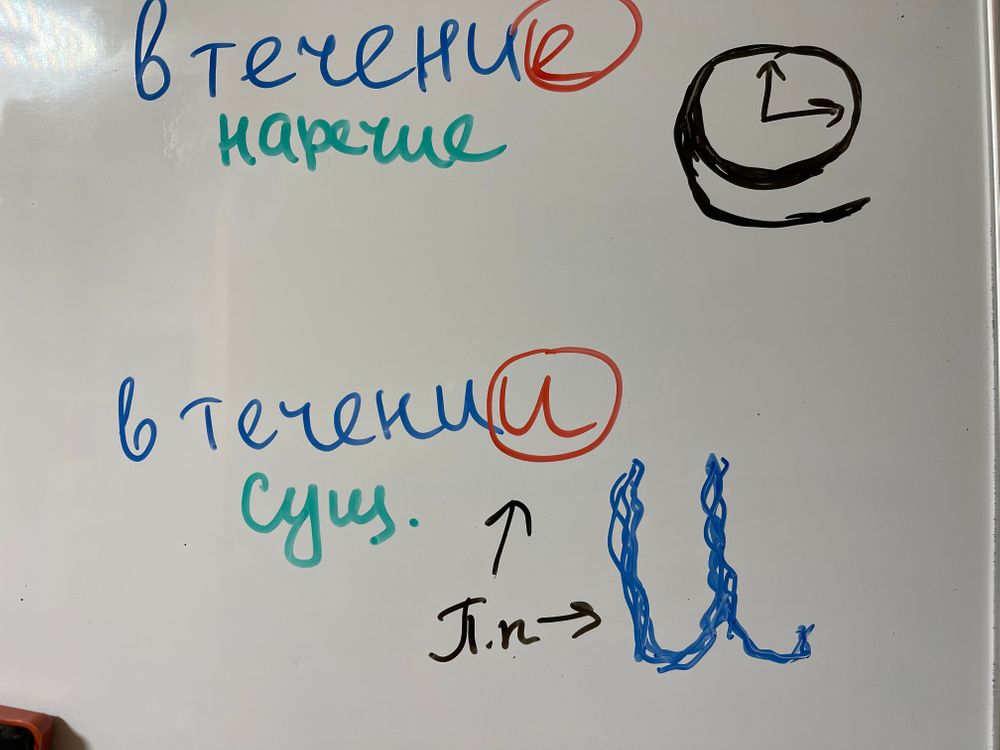 в течение
наречие
в течении
сущ.
П.п → и